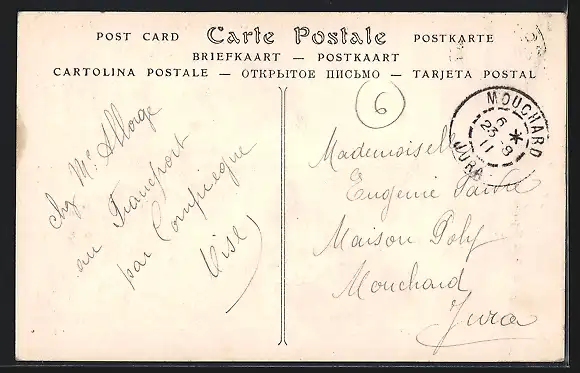 POST CARD Carte Postale POSTKARTE
BRIEFKAART — POSTKAART
CARTOLINA POSTALE — ОТКРЫТОЕ ПИСЬМО — TARJETA POSTAL
6
MOUCHARD
6
23 - 9
11
JURA
chez Mr Allorge
au Francport
par Compiegne
Oise
Mademoiselle
Eugenie
Maison Poly
Mouchard
Jura